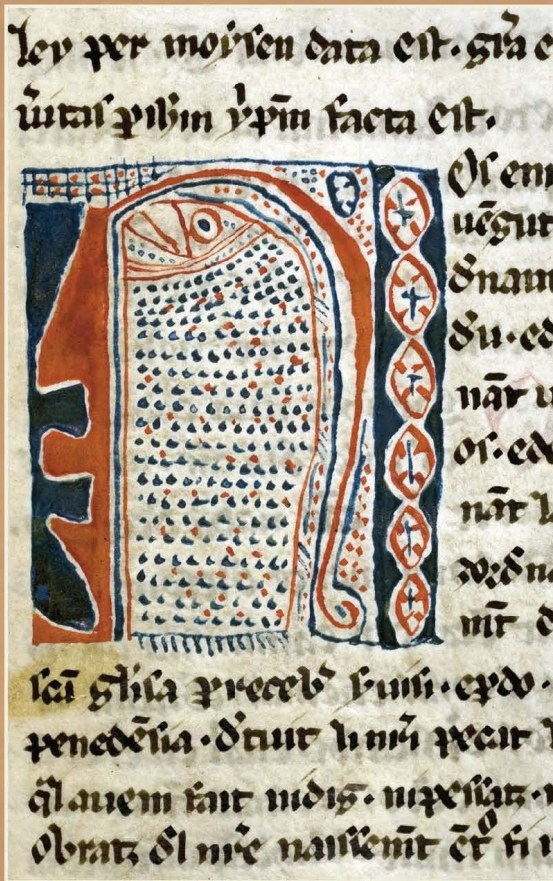 lex per moysen data est. gr̃a e
u̾itas ꝑ ih̃m xp̃m facta est.
Os em
uẽgut
d̾nant
d̾u. ed
nãt u
os. ed
nãt l
zord̾na
mt̃ d
sc̃a gl̾isa p̃receb̾ s̾uisi. epdo.
penedẽsia. d̾tuit li nr̃i pecat l
q̃l auem fait nidig. nipessatz. n
obratz d̾l nr̃e naissemt̃